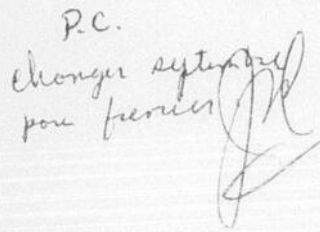 P.C.
changer septembre
pour fevrier